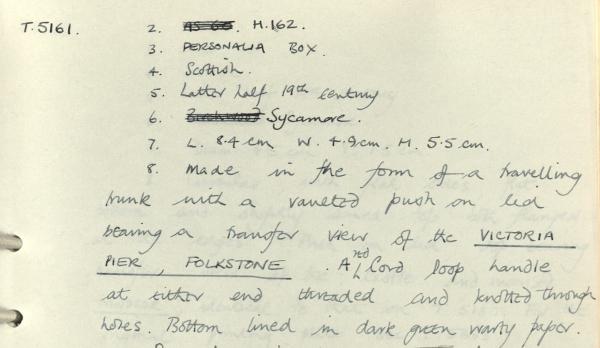 T.5161. 2. H.162.
3. PERSONALIA BOX.
4. Scottish.
5. Latter half 19th century
6. Sycamore.
7. L. 8.4cm W. 4.9cm. H. 5.5cm.
8. Made in the form of a travelling
trunk with a vaulted push on lid
bearing a transfer view of the VICTORIA
PIER, FOLKSTONE. A red Cord loop handle
at either end threaded and knotted through
holes. Bottom lined in dark green warty paper.